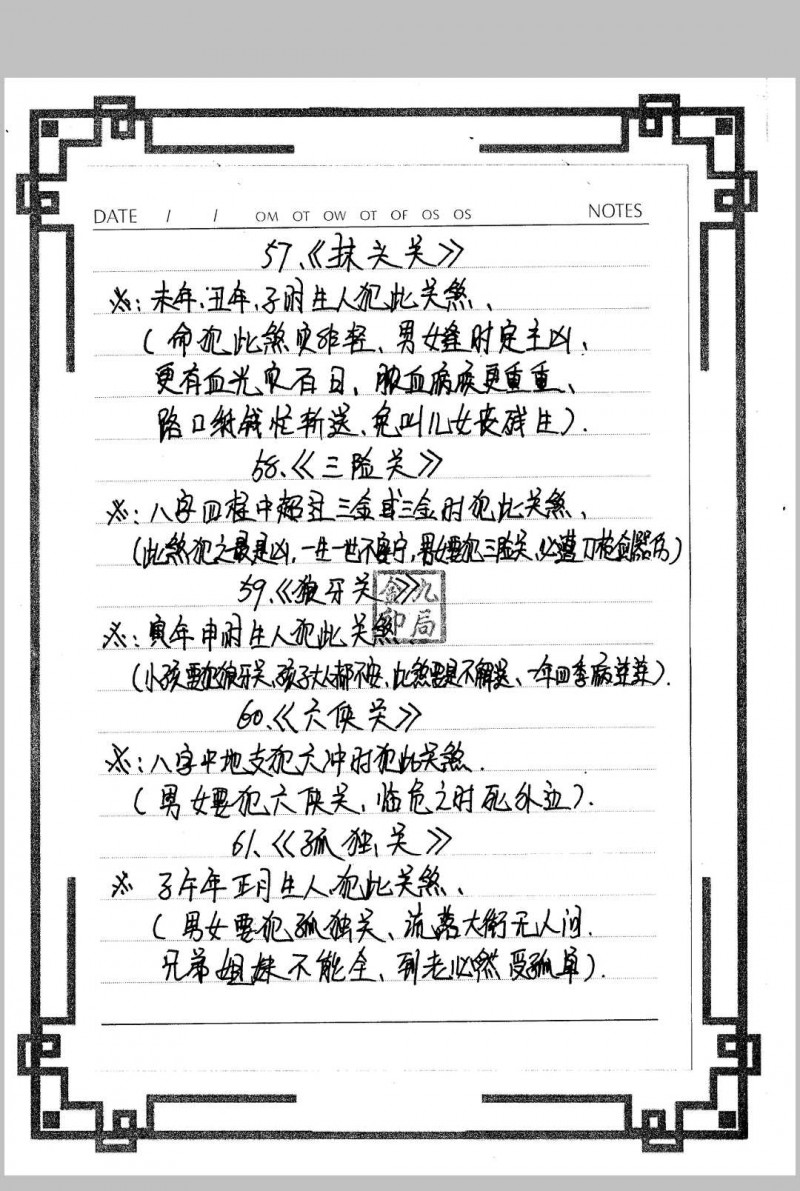 DATE / / OM OT OW OT OF OS OS NOTES
57、《抹头关》
※:未年、丑年、子时生人犯此关煞、
(命犯此煞实非轻、男女逢时定主凶、
更有血光灾百日、脓血病疾更重重、
路口纸钱忙斩送、免叫儿女丧残生).
58、《三险关》
※:八字四柱中超过三金或三金时犯此关煞、
(此煞犯之最是凶,一生一世不安宁,男女要犯三险关,必遭刀枪剑器伤)
59、《狼牙关》
金九
印局
※:寅年申时生人犯此关煞
(小孩要犯狼牙关,孩子大人都不安,此煞要是不解送、一年四季病).
60、《六侠关》
※:八字中地支犯六冲时犯此关煞.
(男女要犯六侠关、临危之时死外边).
61、《孤独关》
※ 子午年正月生人犯此关煞、
(男女要犯孤独关、流落大街无人问.
兄弟姐妹不能全、到老必然受孤单).